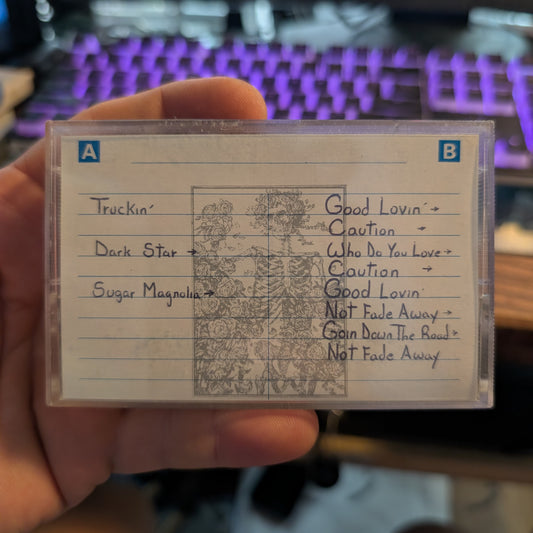 A
B
Truckin'
Dark Star →
Sugar Magnolia →
Good Lovin' →
Caution →
Who Do You Love →
Caution →
Good Lovin'
Not Fade Away →
Goin Down The Road →
Not Fade Away